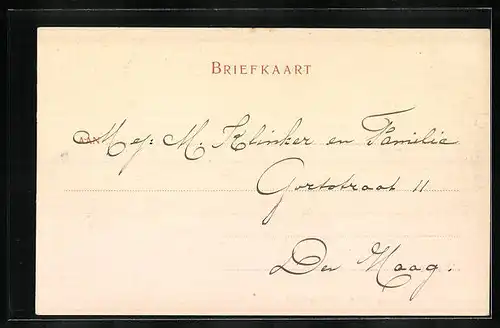 BRIEFKAART
AAN Mej: M. Klinker en Familie
Gortstraat 11
Den Haag.